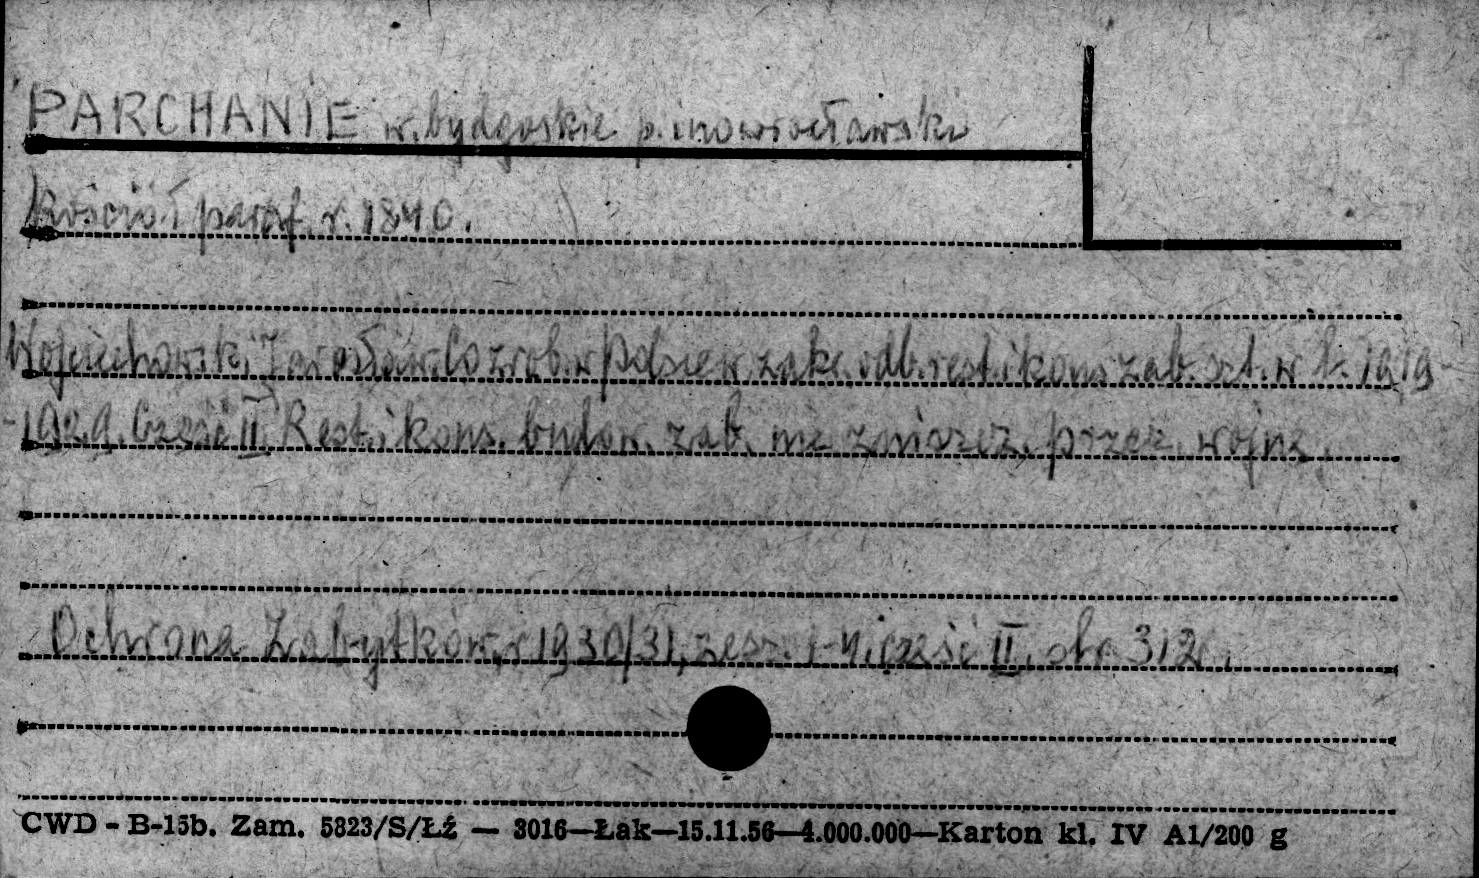 PARCHANIE w. bydgoskie p. inowrocławski
Kościół paraf. r. 1840.
Wojciechowski Jarosław. Co zrob. w Polsce w zakr. odb. rest. i kons. zab. szt. w l. 1919-
-1929. Część II Rest. i kons. budow. zab. nie zniszcz. przez wojnę.
Ochrona Zabytków, r 1930/31, zesz. 1-4, część II, str 312.
CWD - B-15b. Zam. 5823/S/Łź — 3016—Łak—15.11.56—4.000.000—Karton kl. IV A1/200 g